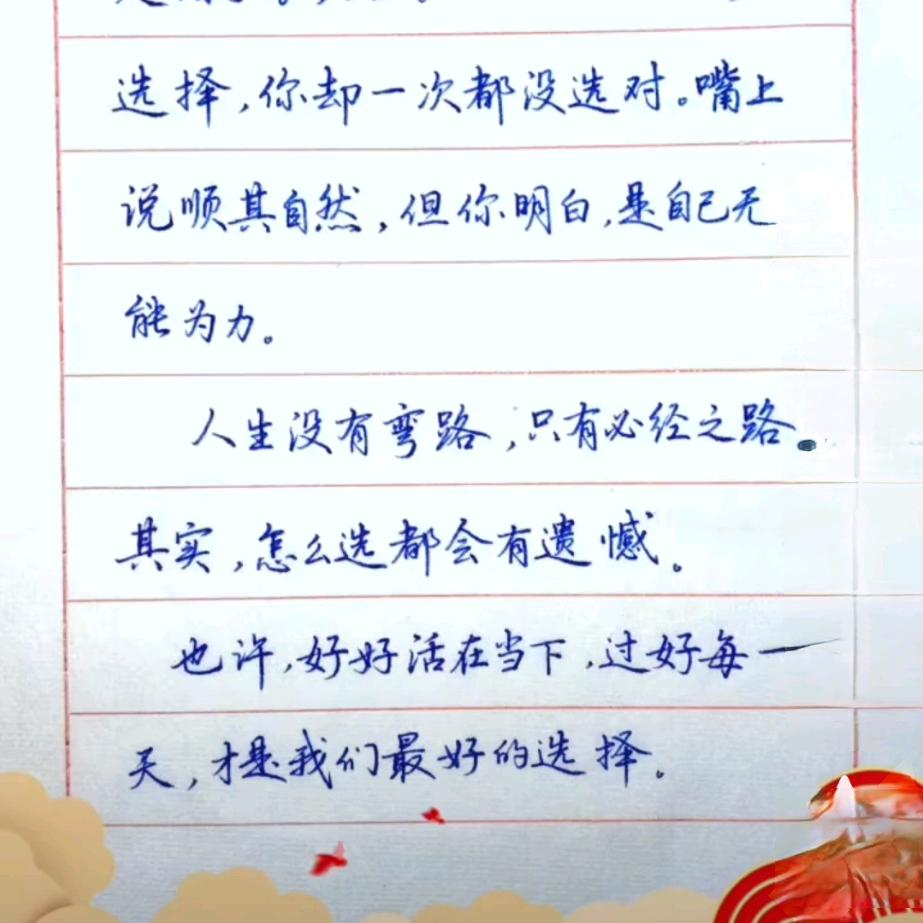 选择,你却一次都没选对。嘴上
说顺其自然,但你明白,是自己无
能为力。
人生没有弯路,只有必经之路。
其实,怎么选都会有遗憾。
也许,好好活在当下,过好每一
天,才是我们最好的选择。